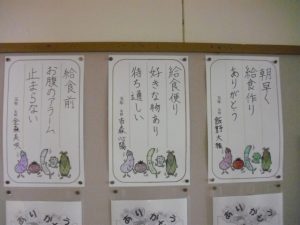 朝早く
給食作り
ありがとう
飯野大雅
給食便り
好きな物あり
待ち遠しい
吉森心陽
給食前
お腹のアラーム
止まらない
ありがとう
ありがとう
ありがとう